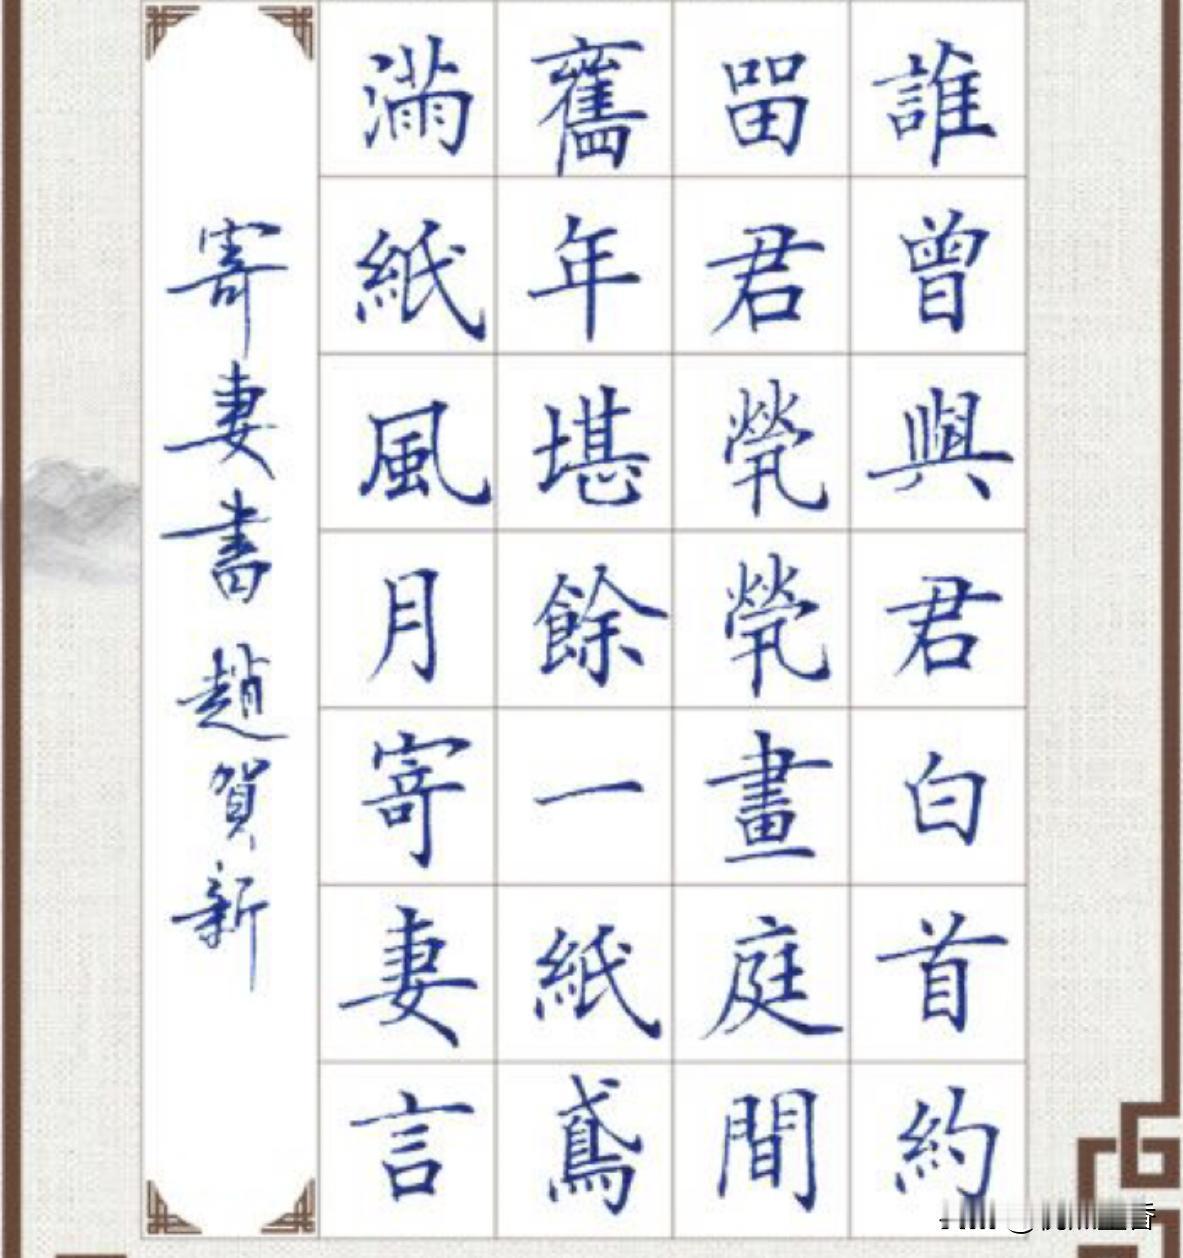 誰曾與君白首約
畱君煢煢畫庭間
舊年堪餘一紙鳶
滿紙風月寄妻言
寄妻書 趙賀新